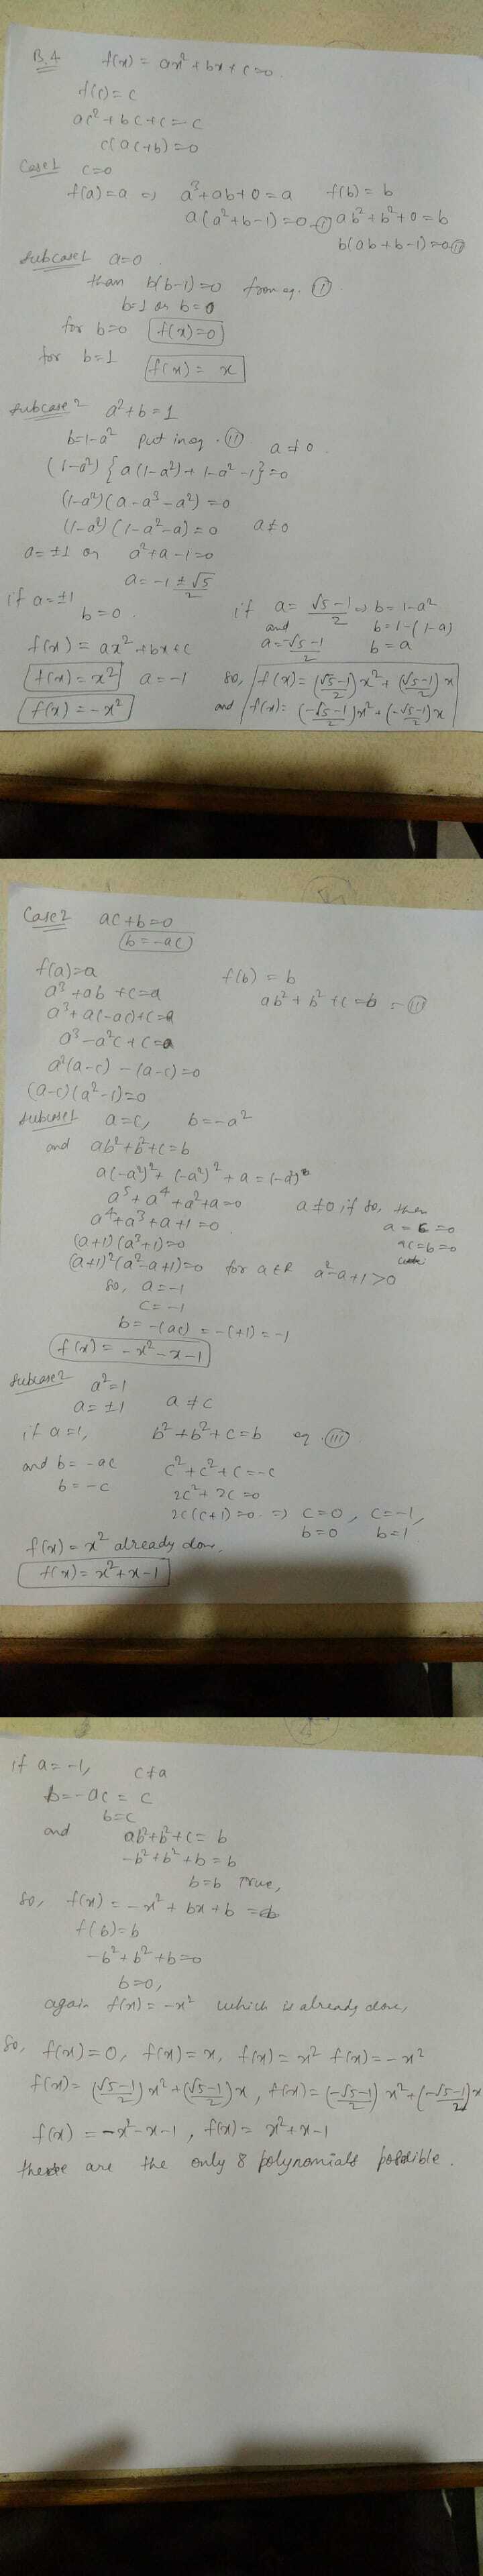 B.4 f(x) = ax² + bx + c = 0.
f(c) = c
ac² + bc + c = c
c(ac+b) = 0
Case 1 c=0
f(a)=a => a³+ab+0=a f(b)=b
a(a²+b-1)=0 -① ab²+b²+0=b
b(ab+b-1)=0 ⑪
Subcase 1 a=0
than b(b-1)=0 from eq. ⑪
b=1 or b=0
for b=0 f(x)=0
for b=1 f(x) = x
Subcase 2 a²+b=1
b=1-a² put in eq. ⑪ a≠0
(1-a²){a(1-a²)+1-a²-1}=0
(1-a²)(a-a³-a²)=0
(1-a²)(1-a²-a)=0 a≠0
a=±1 or a²+a-1=0
a = -1±√5/2
if a=±1 if a = √5-1/2 => b=1-a²
b=0. and b=1-(1-a)
f(x) = ax²+bx+c a=-√5-1/2 b=a
f(x)=x² a=-1 so, f(x)=(√5-1/2)x²+(√5-1/2)x
f(x)=-x² and f(x)=(-√5-1/2)x²+(-√5-1/2)x
Case 2 ac+b=0
b=-ac
f(a)=a f(b) = b
a³+ab+c=a ab²+b²+c=b -⑪⑪
a³+a(-ac)+c=a
a³-a²c+c=a
a²(a-c)-(a-c)=0
(a-c)(a²-1)=0
Subcase 1 a=c, b=-a²
and ab²+b²+c=b
a(-a²)²+(-a²)²+a=(-a²)
a⁵+a⁴+a²+a=0 a≠0 if so, then
a⁴+a³+a+1=0 a=c=0
(a+1)(a³+1)=0 ac=b=0
(a+1)²(a²-a+1)=0 for a∈R a²-a+1>0
so, a=-1
c=-1
b=-(ac)=-(+1)=-1
f(x)=-x²-x-1
Subcase 2 a²=1
a=±1 a≠c
if a=1, b²+b²+c=b eq. ⑪⑪
and b=-ac c²+c²+c=-c
b=-c 2c²+2c=0
2c(c+1)=0 => c=0, c=-1,
b=0 b=1
f(x)=x² already done.
f(x)=x²+x-1
if a=-1, c≠a
b=-ac=c
b=c
and ab²+b²+c=b
-b²+b²+b=b
b=b True,
so, f(x)=-x²+bx+b
f(b)=b
-b²+b²+b=0
b=0,
again f(x)=-x² which is already done,
So, f(x)=0, f(x)=x, f(x)=x² f(x)=-x²
f(x)=(√5-1/2)x²+(√5-1/2)x, f(x)=(-√5-1/2)x²+(-√5-1/2)x
f(x)=-x²-x-1, f(x)=x²+x-1
these are the only 8 polynomials possible.